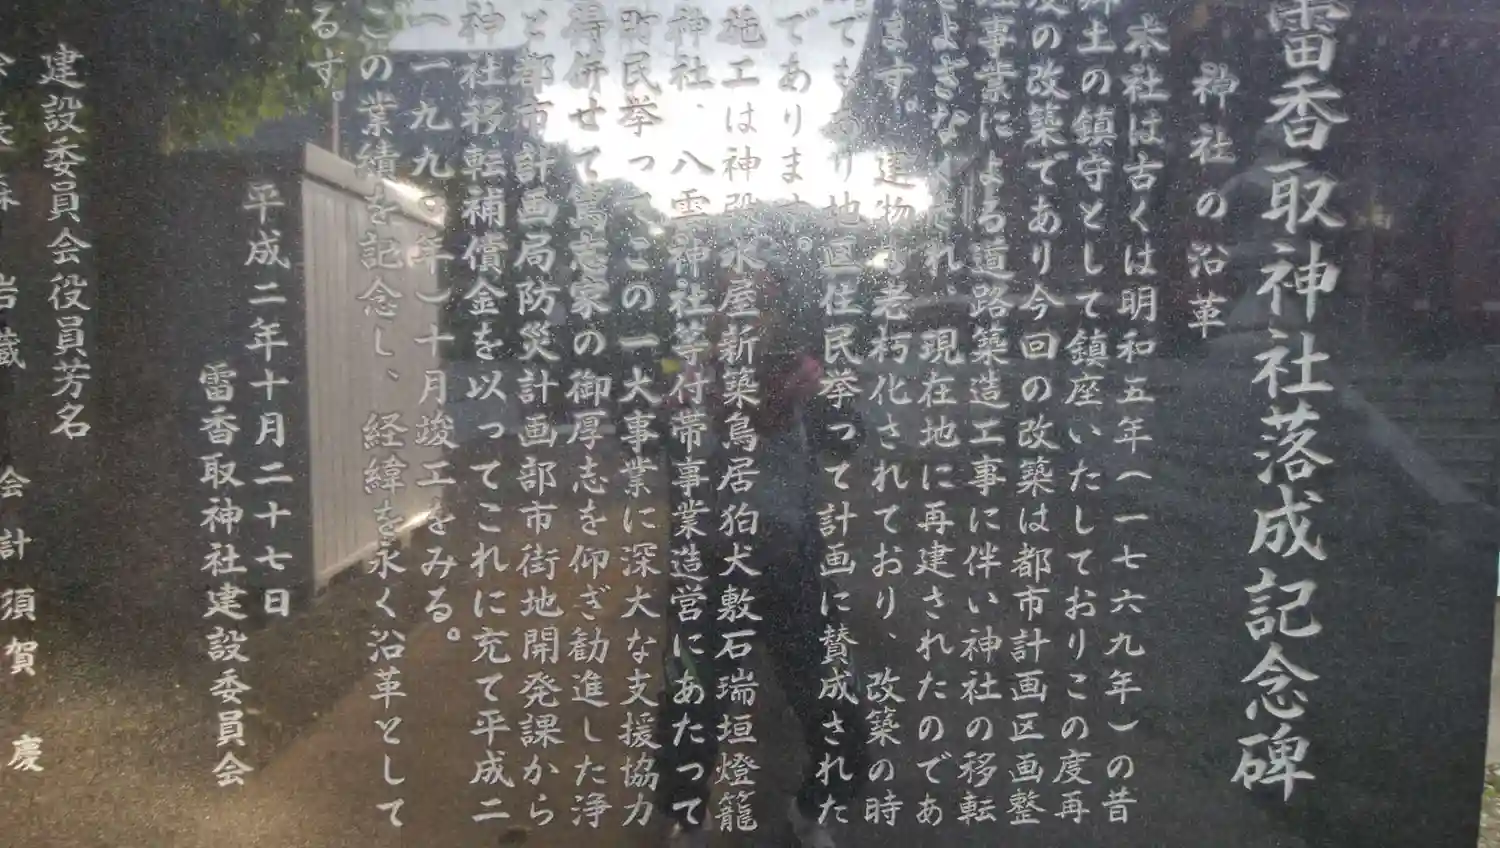 雷香取神社落成記念碑
神社の沿革
本社は古くは明和五年(一七六九年)の昔
郷土の鎮守として鎮座いたしておりこの度再
度の改築であり今回の改築は都市計画区画整
理事業による道路築造工事に伴い神社の移転
よぎなくされ、現在地に再建されたのであ
ます。建物も老朽化されており、改築の時
でもあり地区住民挙って計画に賛成された
であります。
施工は神殿水屋新築鳥居狛犬敷石瑞垣燈籠
神社、八雲神社等付帯事業造営にあたって
町民挙ってこの一大事業に深大な支援協力
得併せて篤志家の御厚志を仰ぎ勧進した浄
と都市計画局防災計画部市街地開発課から
神社移転補償金を以ってこれに充て平成二
一九九〇年)十月竣工をみる。
この業績を記念し、経緯を永く沿革として
るす。
平成二年十月二十七日
雷香取神社建設委員会
建設委員会役員芳名
岩蔵 会計 須賀 慶